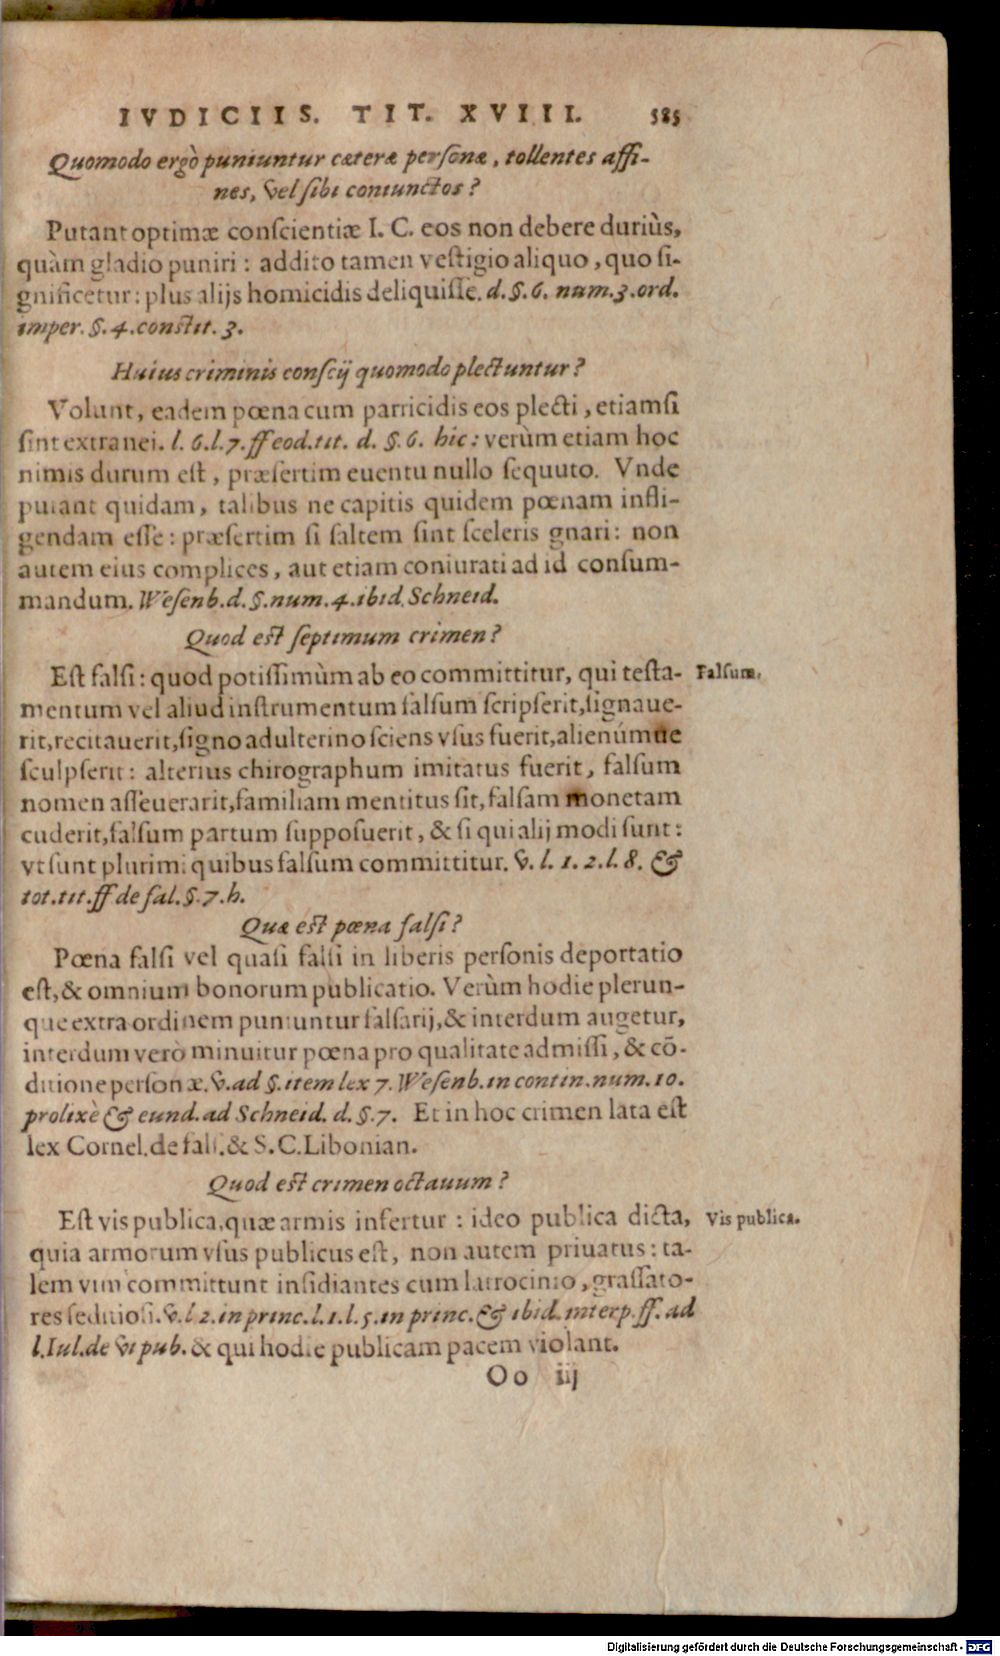 IVDICIIS. TIT. XVIII. 585
Quomodo ergò puniuntur cæteræ personæ, tollentes affi-
nes, vel sibi coniunctos?
Putant optimæ conscientiæ I. C. eos non debere duriùs,
quàm gladio puniri: addito tamen vestigio aliquo, quo si-
gnificetur: plus alijs homicidis deliquisse. d. §. 6. num. 3. ord.
imper. §. 4. constit. 3.
Huius criminis conscij quomodo plectuntur?
Volunt, eadem pœna cum parricidis eos plecti, etiamsi
sint extranei. l. 6. l. 7. ff eod. tit. d. §. 6. hic: verùm etiam hoc
nimis durum est, præsertim euentu nullo sequuto. Vnde
putant quidam, talibus ne capitis quidem pœnam infli-
gendam esse: præsertim si saltem sint sceleris gnari: non
autem eius complices, aut etiam coniurati ad id consum-
mandum. Wesenb. d. §. num. 4. ibid. Schneid.
Quod est septimum crimen?
Est falsi: quod potissimùm ab eo committitur, qui testa- Falsum.
mentum vel aliud instrumentum falsum scripserit, signaue-
rit, recitauerit, signo adulterino sciens vsus fuerit, alienúmue
sculpserit: alterius chirographum imitatus fuerit, falsum
nomen asseuerarit, familiam mentitus sit, falsam monetam
cuderit, falsum partum supposuerit, & si qui alij modi sunt:
vt sunt plurimi quibus falsum committitur. v. l. 1. 2. l. 8. &
tot. tit. ff de fal. §. 7. h.
Quæ est pœna falsi?
Pœna falsi vel quasi falsi in liberis personis deportatio
est, & omnium bonorum publicatio. Verùm hodie plerun-
que extra ordinem puniuntur falsarij, & interdum augetur,
interdum verò minuitur pœna pro qualitate admissi, & cõ-
ditione personæ. v. ad §. item lex 7. Wesenb. in contin. num. 10.
prolixè & eund. ad Schneid. d. §. 7. Et in hoc crimen lata est
lex Cornel. de fals. & S. C. Libonian.
Quod est crimen octauum?
Est vis publica, quæ armis infertur: ideo publica dicta, Vis publica.
quia armorum vsus publicus est, non autem priuatus: ta-
lem vim committunt insidiantes cum latrocinio, grassato-
res seditiosi. v. l 2. in princ. l. 1. l. 5. in princ. & ibid. interp. ff. ad
l. Iul. de vi pub. & qui hodie publicam pacem violant.
Oo iij
Digitalisierung gefördert durch die Deutsche Forschungsgemeinschaft - DFG